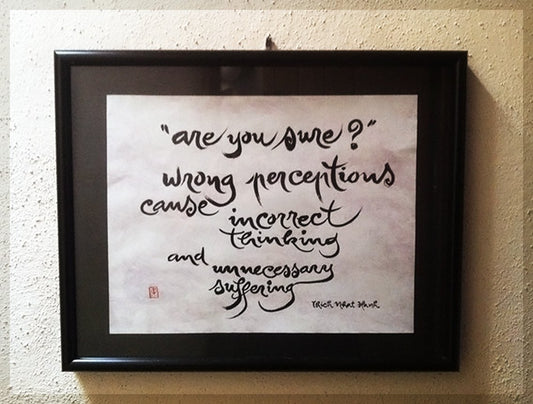 "are you sure?"
wrong perceptions
cause incorrect
thinking
and unnecessary
suffering
Thich Nhat Hanh